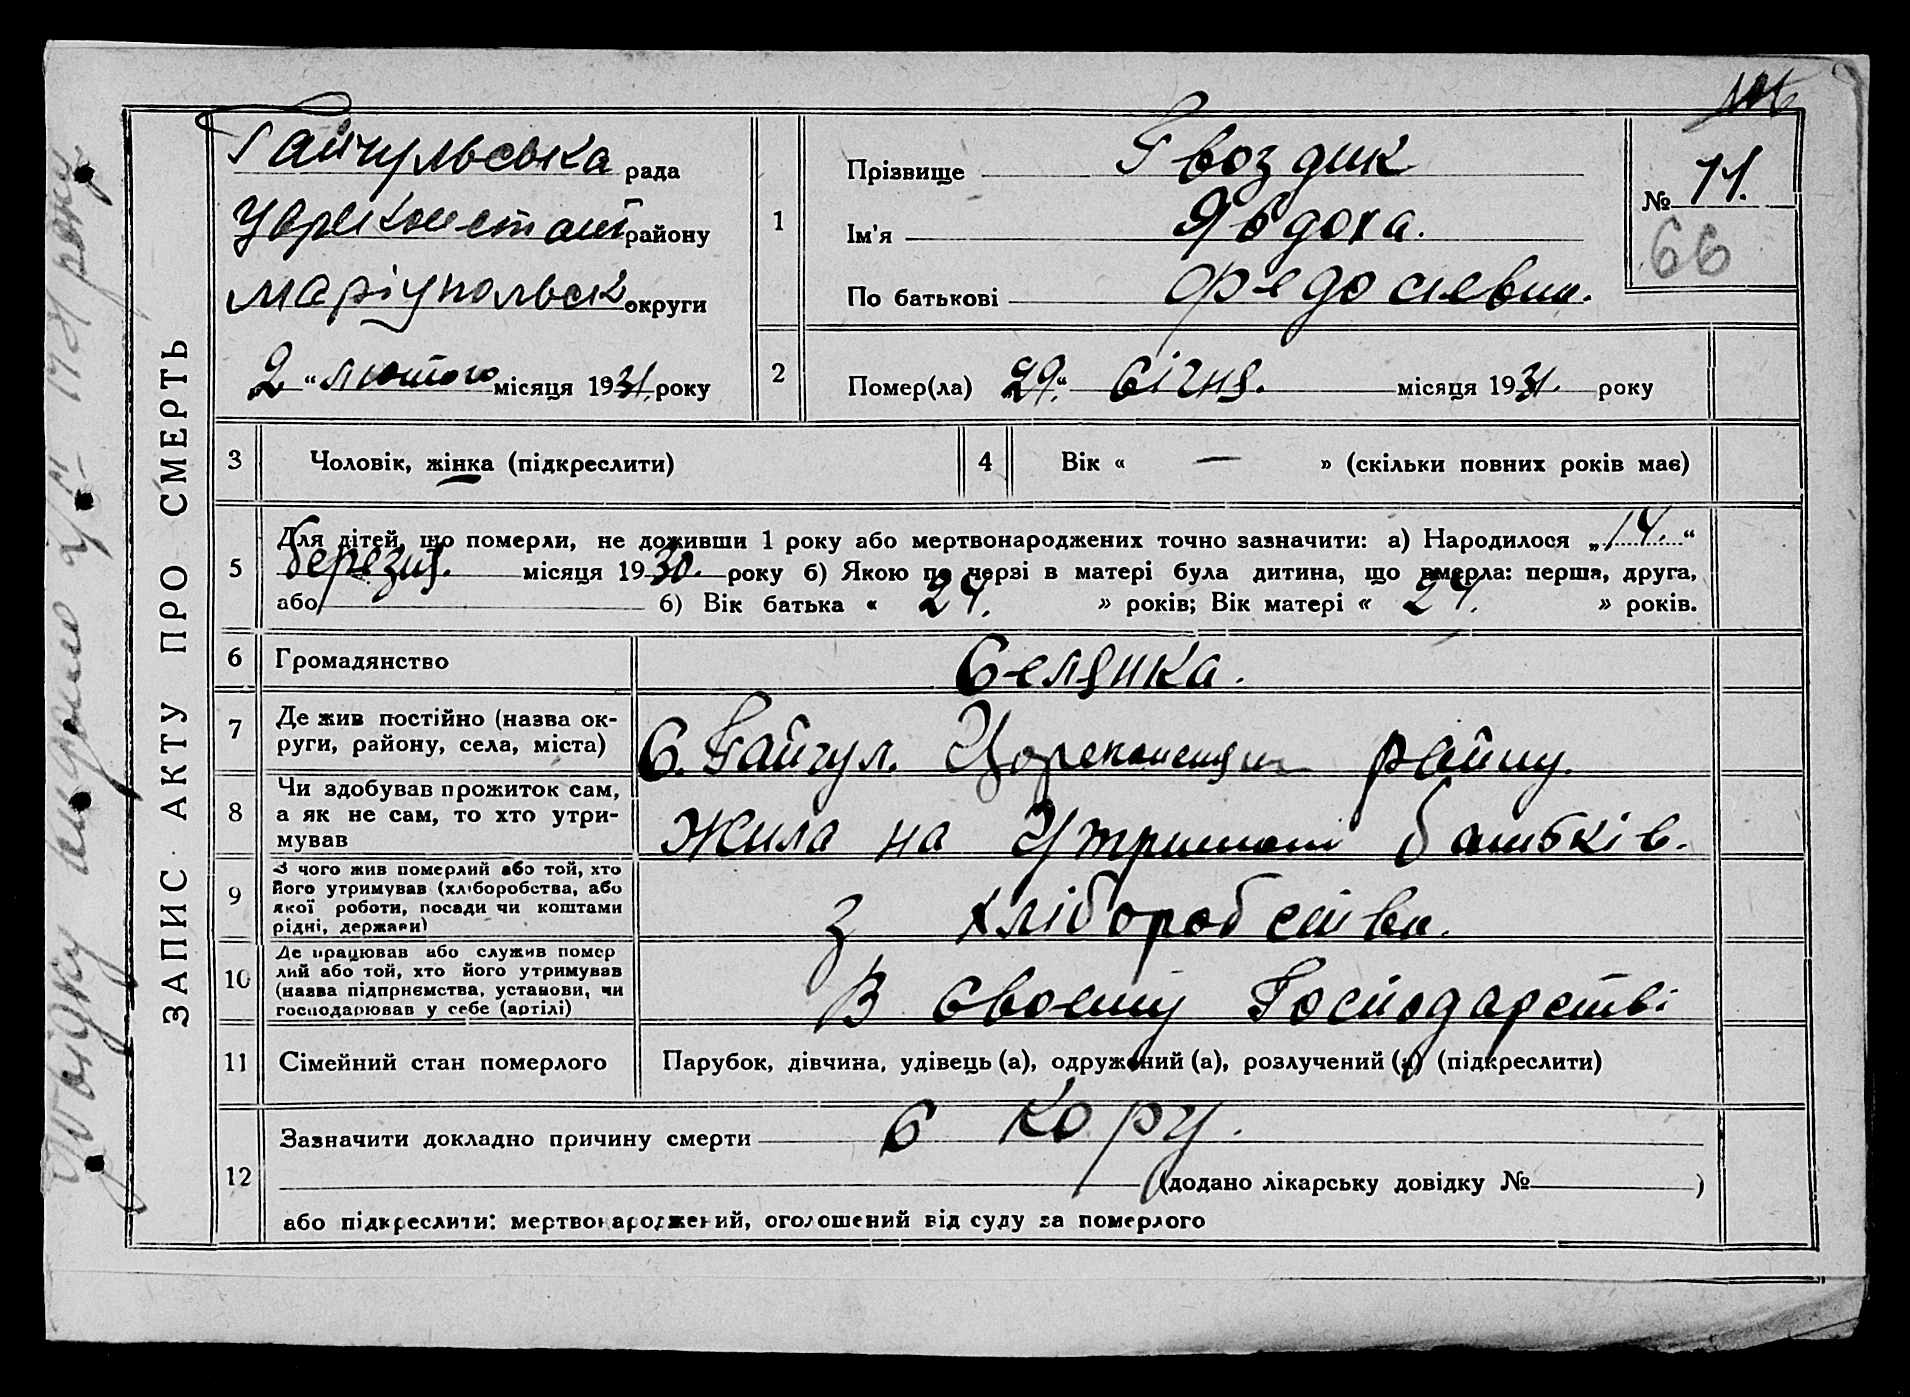 106
ЗАПИС АКТУ ПРО СМЕРТЬ
Гайчульська рада
району
Маріупольськ округи
2 " лютого місяця 1931. року
1
Прізвище Гвоздик
Ім'я Явдоха.
По батькові Федосиевна.
№ 11.
66
2
Помер(ла) 29." січня. місяця 1931. року
3
Чоловік, жінка (підкреслити)
4
Вік « — » (скільки повних років має)
5
Для дітей, що померли, не доживши 1 року або мертвонароджених точно зазначити: а) Народилося „ 14. “
березня. місяця 1930. року б) Якою по черзі в матері була дитина, що вмерла: перша, друга,
або б) Вік батька « 24. » років; Вік матері « 24. » років.
6
Громадянство
Селянка.
7
Де жив постійно (назва ок-
руги, району, села, міста)
С. Гайчул. району.
8
Чи здобував прожиток сам,
а як не сам, то хто утри-
мував
Жила на батьків.
9
З чого жив померлий або той, хто
його утримував (хліборобства, або
якої роботи, посади чи коштами
рідні, держави)
З хліборобства.
10
Де працював або служив помер
лий або той, хто його утримував
(назва підприємства, установи, чи
господарював у себе (артілі)
В своєму Господарстві
11
Сімейний стан померлого
Парубок, дівчина, удівець (а), одружений (а), розлучений (а) (підкреслити)
12
Зазначити докладно причину смерти с кору.
(додано лікарську довідку № )
або підкреслити: мертвонароджений, оголошений від суду за померлого